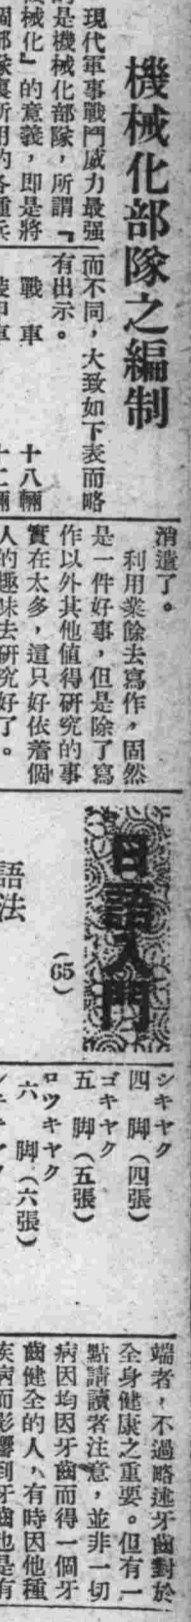 機械化部隊之編制
現代軍事戰鬥威力最强
的是機械化部隊，所謂『
機械化』的意義，即是將
個部隊裏所用的各種兵
而不同，大致如下表而略
有出示。
戰車　十八輛
裝甲車　十二輛
消遣了。
利用業餘去寫作，固然
是一件好事，但是除了寫
作以外其他値得研究的事
實在太多，這只好依着個
人的趣味去研究好了。
日語入門
(65)
語法
シキヤク
四脚(四張)
ゴキヤク
五脚(五張)
ロツキヤク
六脚(六張)
端者，不過略述牙齒對於
全身健康之重要。但有一
點請讀者注意，並非一切
病因均因牙齒而得一個牙
齒健全的人，有時因他種
疾病而影響到牙齒也是有